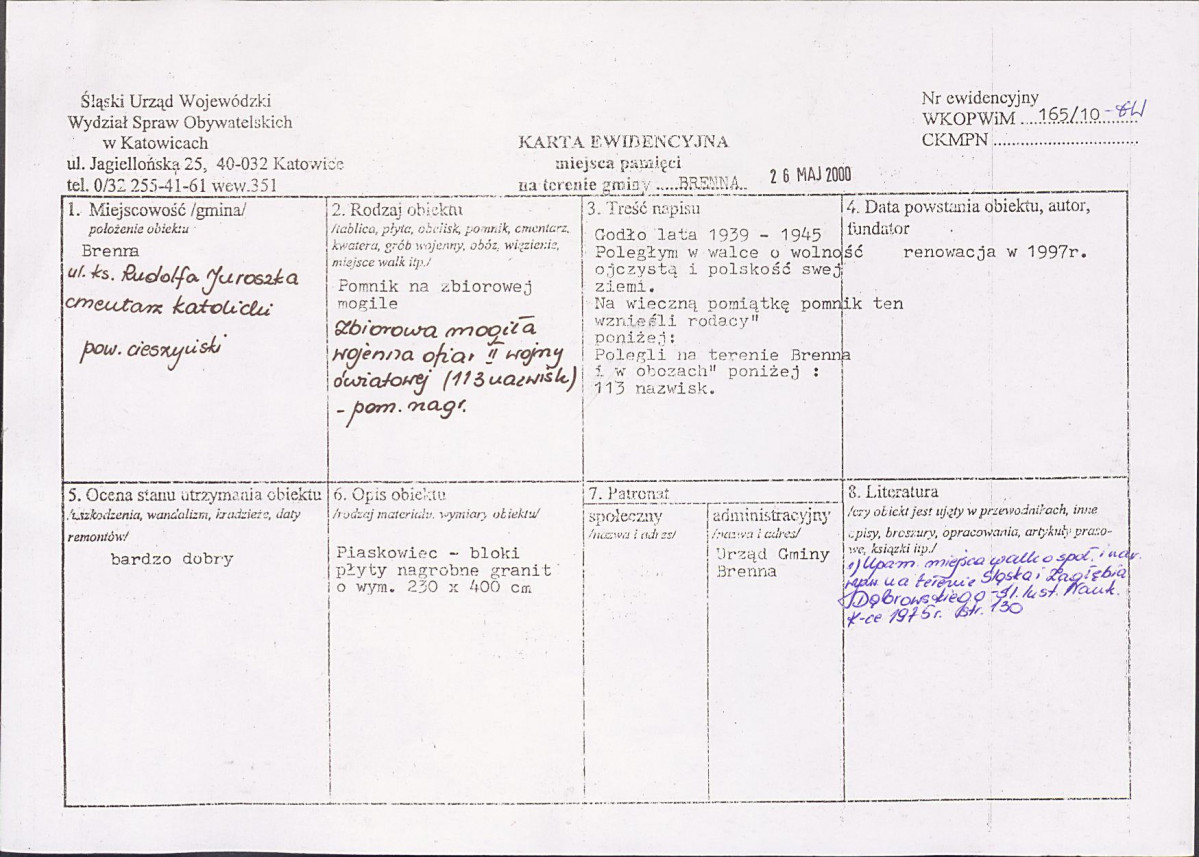 Śląski Urząd Wojewódzki
Wydział Spraw Obywatelskich
w Katowicach
ul. Jagiellońska 25, 40-032 Katowice
tel. 0/32 255-41-61 wew.351
KARTA EWIDENCYJNA
miejsca pamięci
na terenie gminy .....BRENNA..
26 MAJ 2000
Nr ewidencyjny
WKOPWiM ....165/10-BW
CKMPN ..................................
1. Miejscowość /gmina/
położenie obiektu
Brenna
ul. ks. Rudolfa Juroszka
cmentarz katolicki
pow. cieszyński
2. Rodzaj obiektu
/tablica, płyta, obelisk, pomnik, cmentarz,
kwatera, grób wojenny, obóz, więzienie,
miejsce walk itp./
Pomnik na zbiorowej
mogile
Zbiorowa mogiła
wojenna ofiar II wojny
światowej (113 nazwisk)
- pom. nagr.
3. Treść napisu
Godło lata 1939 - 1945
Poległym w walce o wolność
ojczystą i polskość swej
ziemi.
Na wieczną pomiątkę pomnik ten
wznieśli rodacy"
poniżej:
Polegli na terenie Brenna
i w obozach" poniżej :
113 nazwisk.
4. Data powstania obiektu, autor,
fundator
renowacja w 1997r.
5. Ocena stanu utrzymania obiektu
/uszkodzenia, wandalizm, kradzieże, daty
remontów/
bardzo dobry
6. Opis obiektu
/rodzaj materiału, wymiary obiektu/
Piaskowiec - bloki
płyty nagrobne granit
o wym. 230 x 400 cm
7. Patronat
społeczny
/nazwa i adres/
administracyjny
/nazwa i adres/
Urząd Gminy
Brenna
8. Literatura
/czy obiekt jest ujęty w przewodnikach, inne
opisy, broszury, opracowania, artykuły praso-
we, książki itp./
1) Upam. miejsca walk o społ. i nar.
wyzw. na terenie Śląska i Zagłębia
Dąbrowskiego - Śl. Inst. Nauk.
K-ce 1975r. str. 130